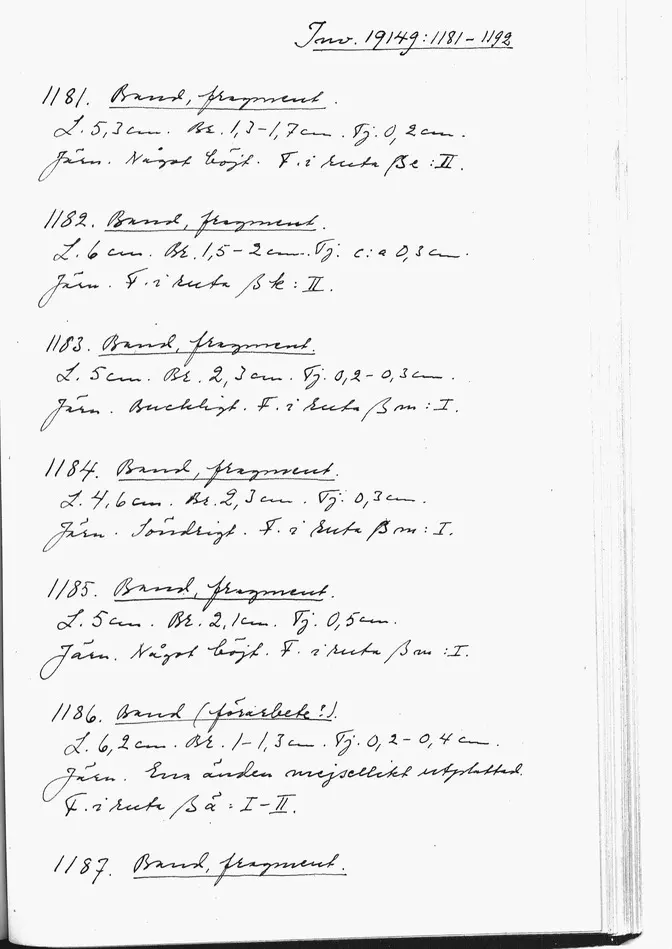 Inv. 19149:1181-1192
1181. Band, fragment.
L. 5,3 cm. Br. 1,3-1,7 cm. Tj. 0,2 cm.
Järn. Något böjt. F. i ruta βe:II.
1182. Band, fragment.
L. 6 cm. Br. 1,5-2 cm. Tj. c:a 0,3 cm.
Järn. F. i ruta βk:II.
1183. Band, fragment.
L. 5 cm. Br. 2,3 cm. Tj. 0,2-0,3 cm.
Järn. Buckligt. F. i ruta βm:I.
1184. Band, fragment.
L. 4,6 cm. Br. 2,3 cm. Tj. 0,3 cm.
Järn. Söndrigt. F. i ruta βm:I.
1185. Band, fragment.
L. 5 cm. Br. 2,1 cm. Tj. 0,5 cm.
Järn. Något böjt. F. i ruta βm:I.
1186. Band (förarbete?).
L. 6,2 cm. Br. 1-1,3 cm. Tj. 0,2-0,4 cm.
Järn. Ena änden mejsellikt utplattad.
F. i ruta βå:I-II.
1187. Band, fragment.